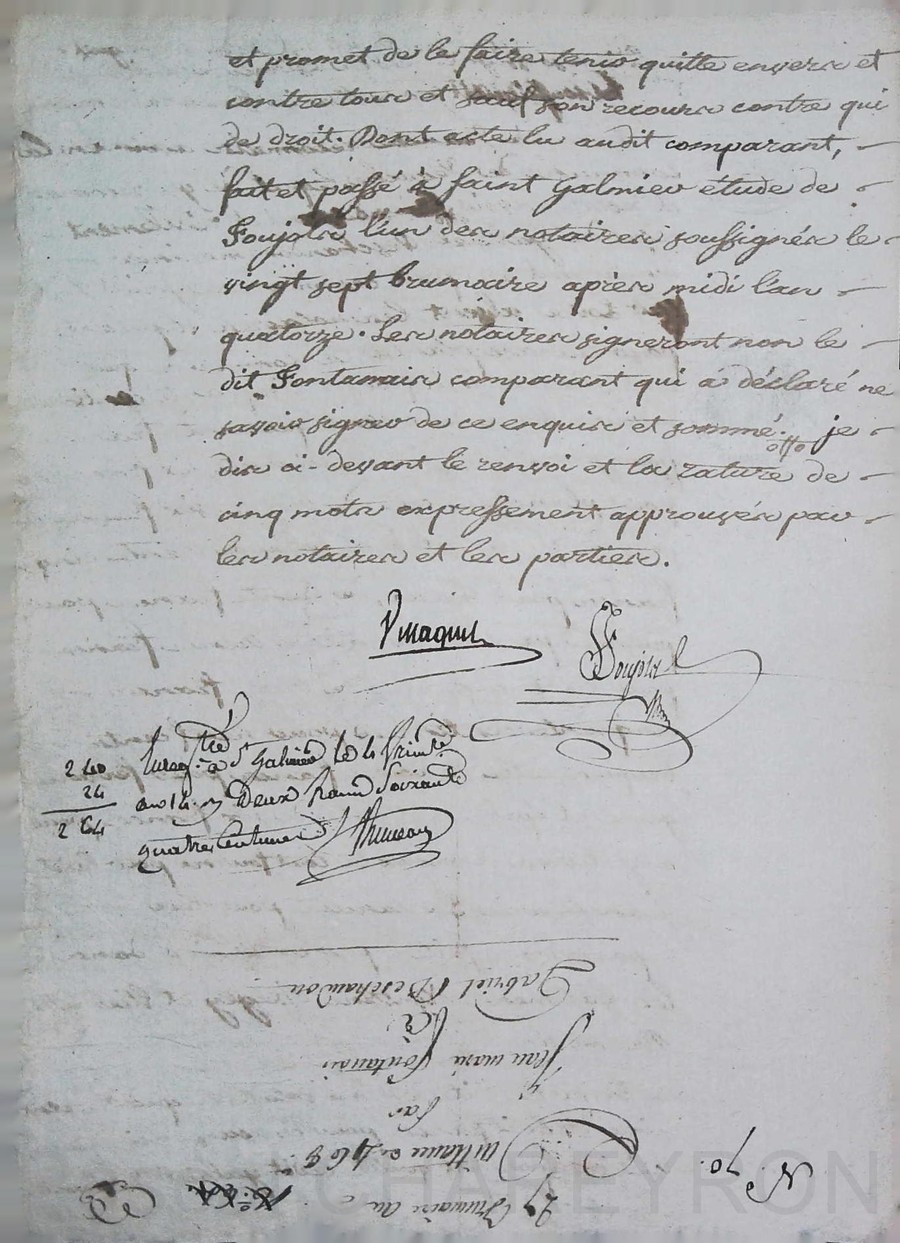 et promet de le faire tenir quitte envers et
contre tous et sauf son recours contre qui
de droit. Dont acte lu audit comparant,
fait et passé à saint Galmier étude de
Foujols l'un des notaires soussignés le
vingt sept brumaire après midi l'an
quatorze. Les notaires signeront non le
dit Fontanais comparant qui a déclaré ne
savoir signer de ce enquis et sommé. je
dis ci-devant le renvoi et la rature de
cinq mots expressement approuvés par
les notaires et les parties.
Foujols
240
24
264
à St Galmier le 4 frimre
an 14. Deux francs soixante
quatre centimes
N°. 70.
27 Brumaire an
quittance. 468.
Par
Jean marie Fontanais
à
Gabriel Deschaudon
CHAPEYRON